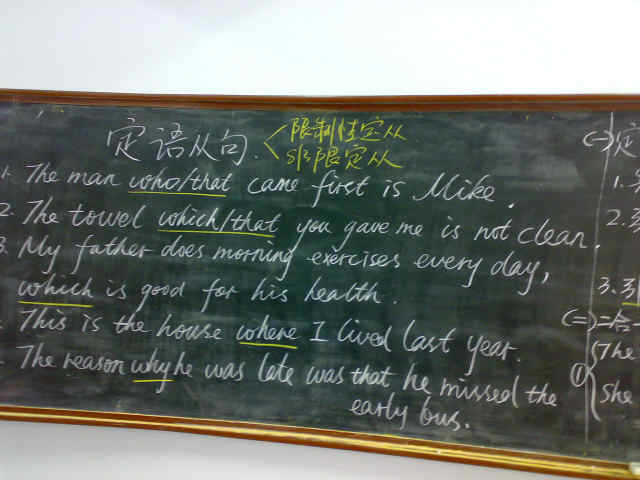 定语从句.
限制性定从
非限定从
1. The man who/that came first is Mike.
2. The towel which/that you gave me is not clean.
3. My father does morning exercises every day,
which is good for his health.
This is the house where I lived last year.
The reason why he was late was that he missed the
early bus.
(一)定
1.
2.
3.
(二)二合
The
①
She